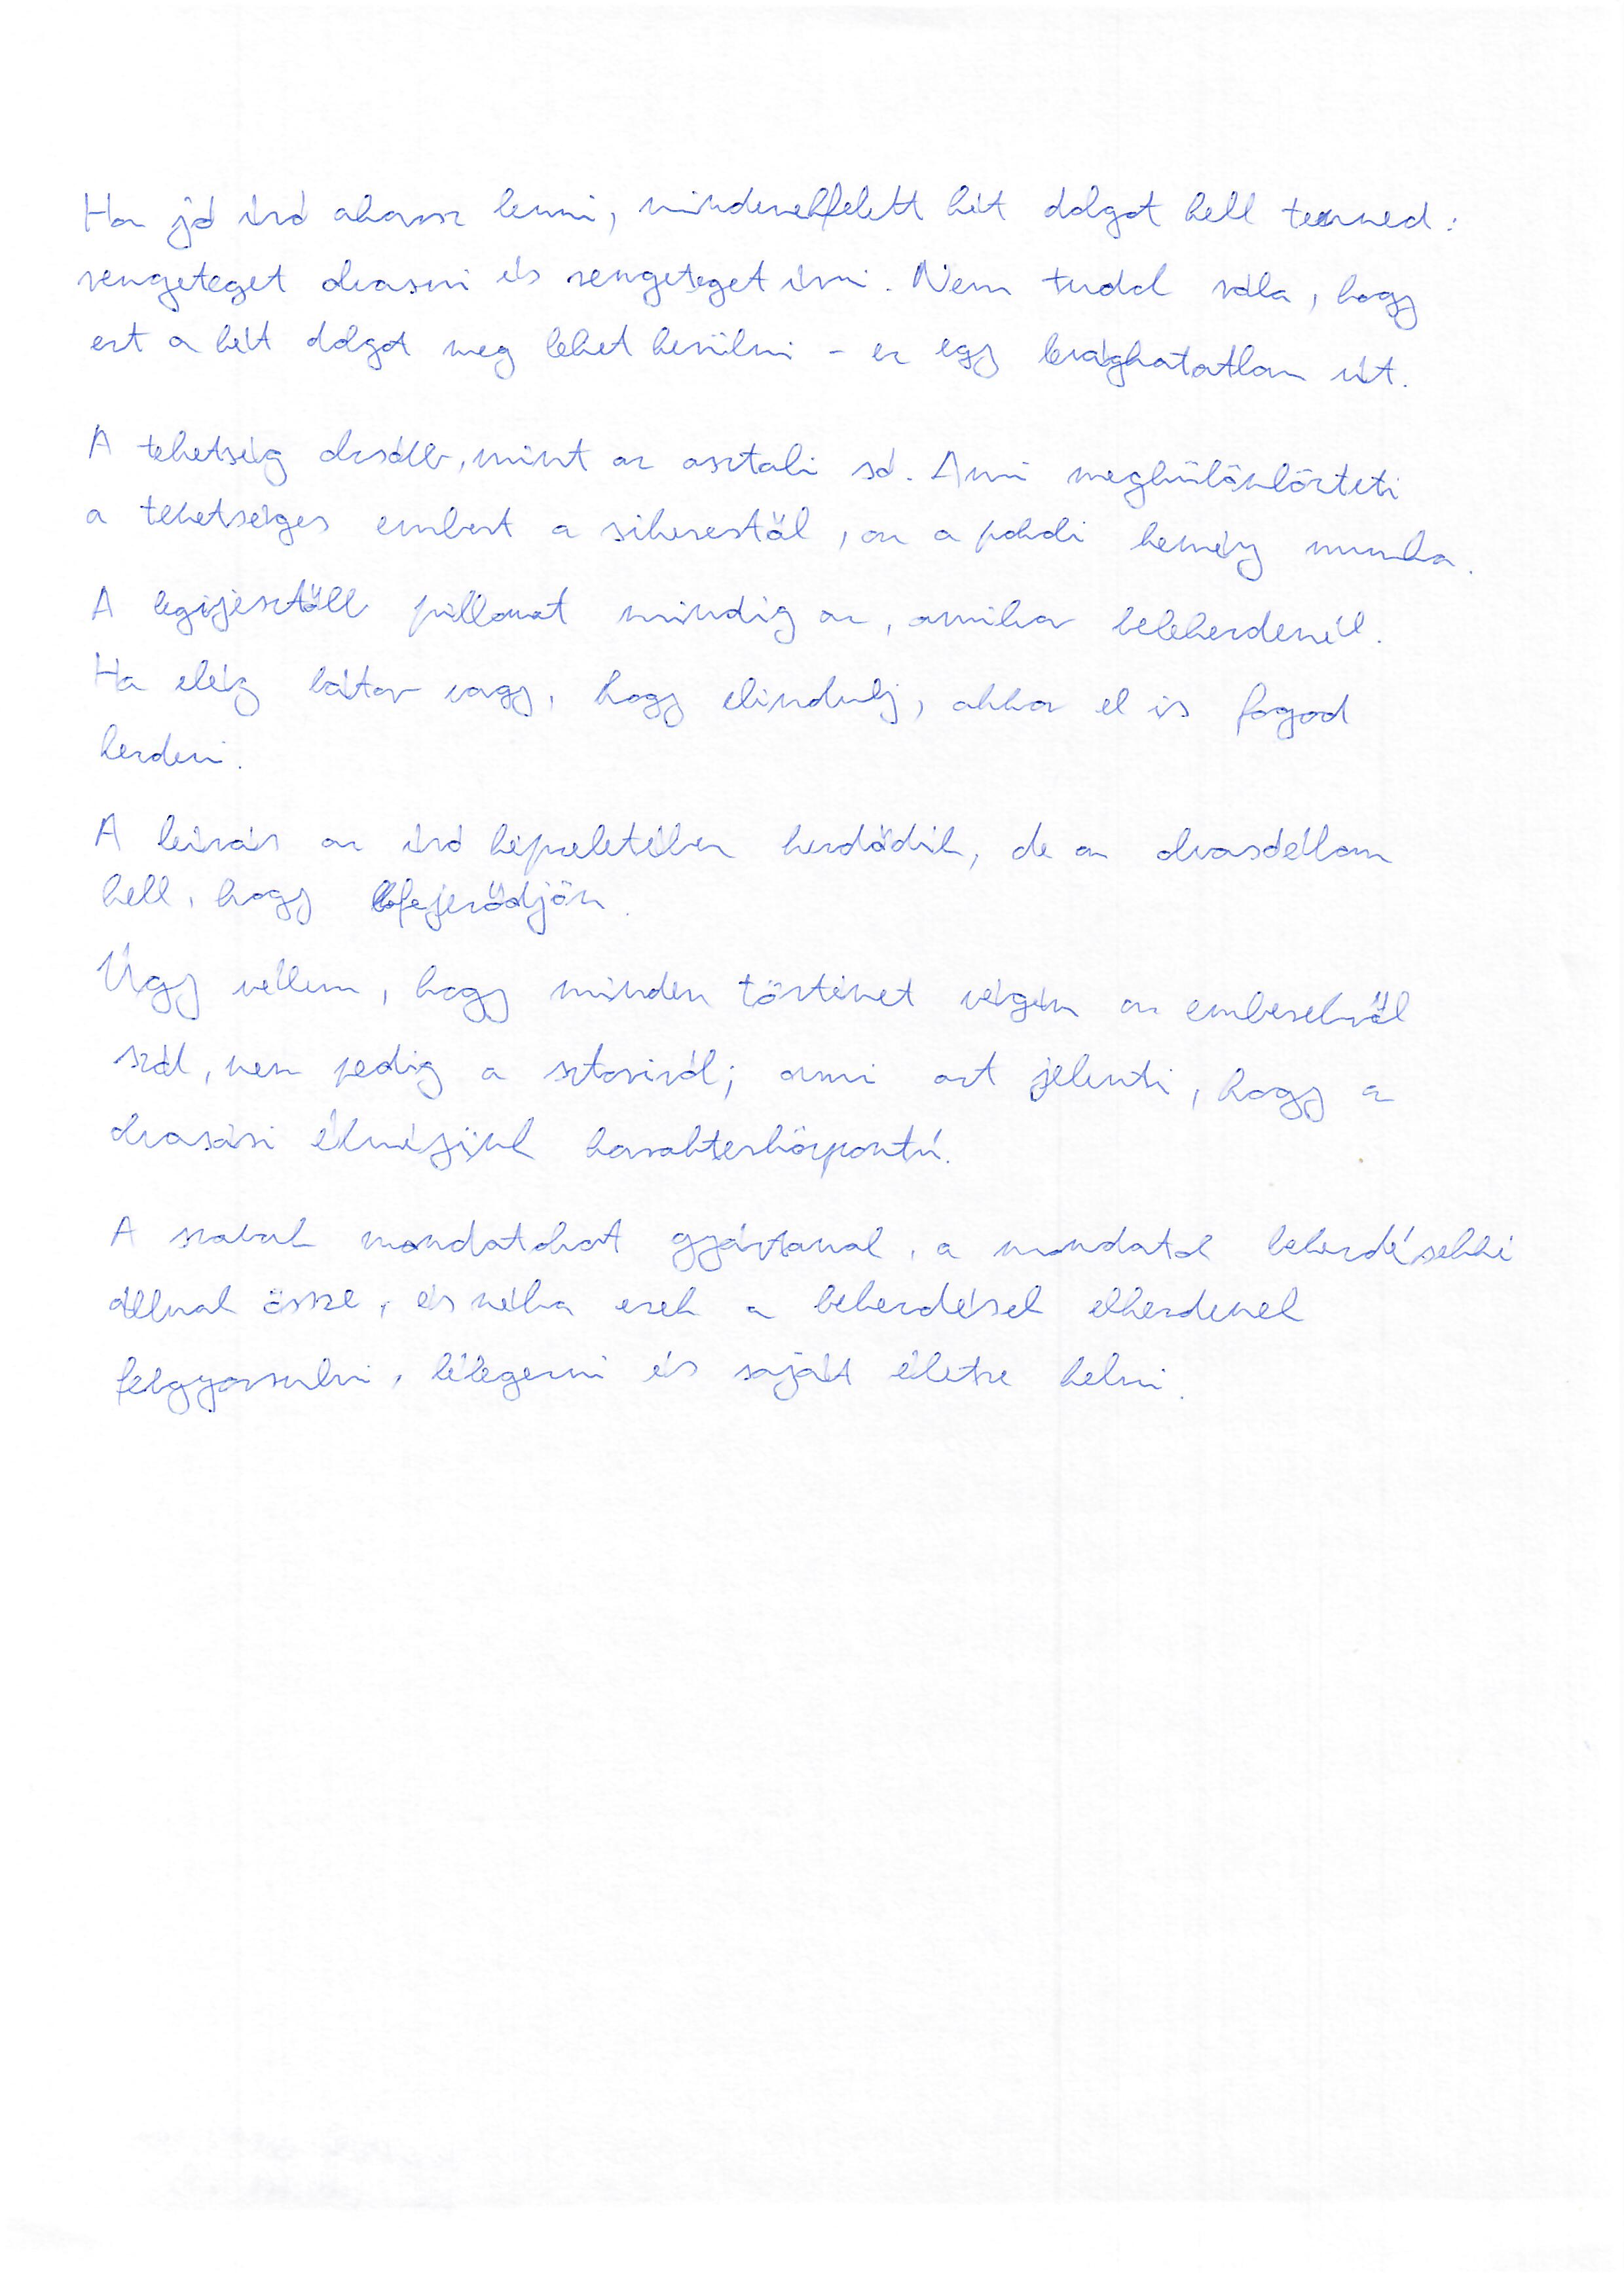 Ha jó író akarsz lenni, mindenekfelett két dolgot kell tenned:
rengeteget olvasni és rengeteget írni. Nem tudok róla, hogy
ezt a két dolgot meg lehet kerülni - ez egy levághatatlan út.
A tehetség olcsóbb, mint az asztali só. Ami megkülönbözteti
a tehetséges embert a sikerestől, az a pokoli kemény munka.
A legijesztőbb pillanat mindig az, amikor belekezdenél.
Ha elég bátor vagy, hogy elindulj, akkor el is fogod
kezdeni.
A leírás az író képzeletében kezdődik, de az olvasóéban
kell, hogy befejeződjön.
Úgy vélem, hogy minden történet végén az emberekről
szól, nem pedig a sztoriról; ami azt jelenti, hogy a
olvasási élményünk karakterközpontú.
A szavak mondatokat gyártanak, a mondatok bekezdésekké
állnak össze, és néha ezek a bekezdések elkezdenek
felgyorsulni, lélegezni és saját életre kelni.